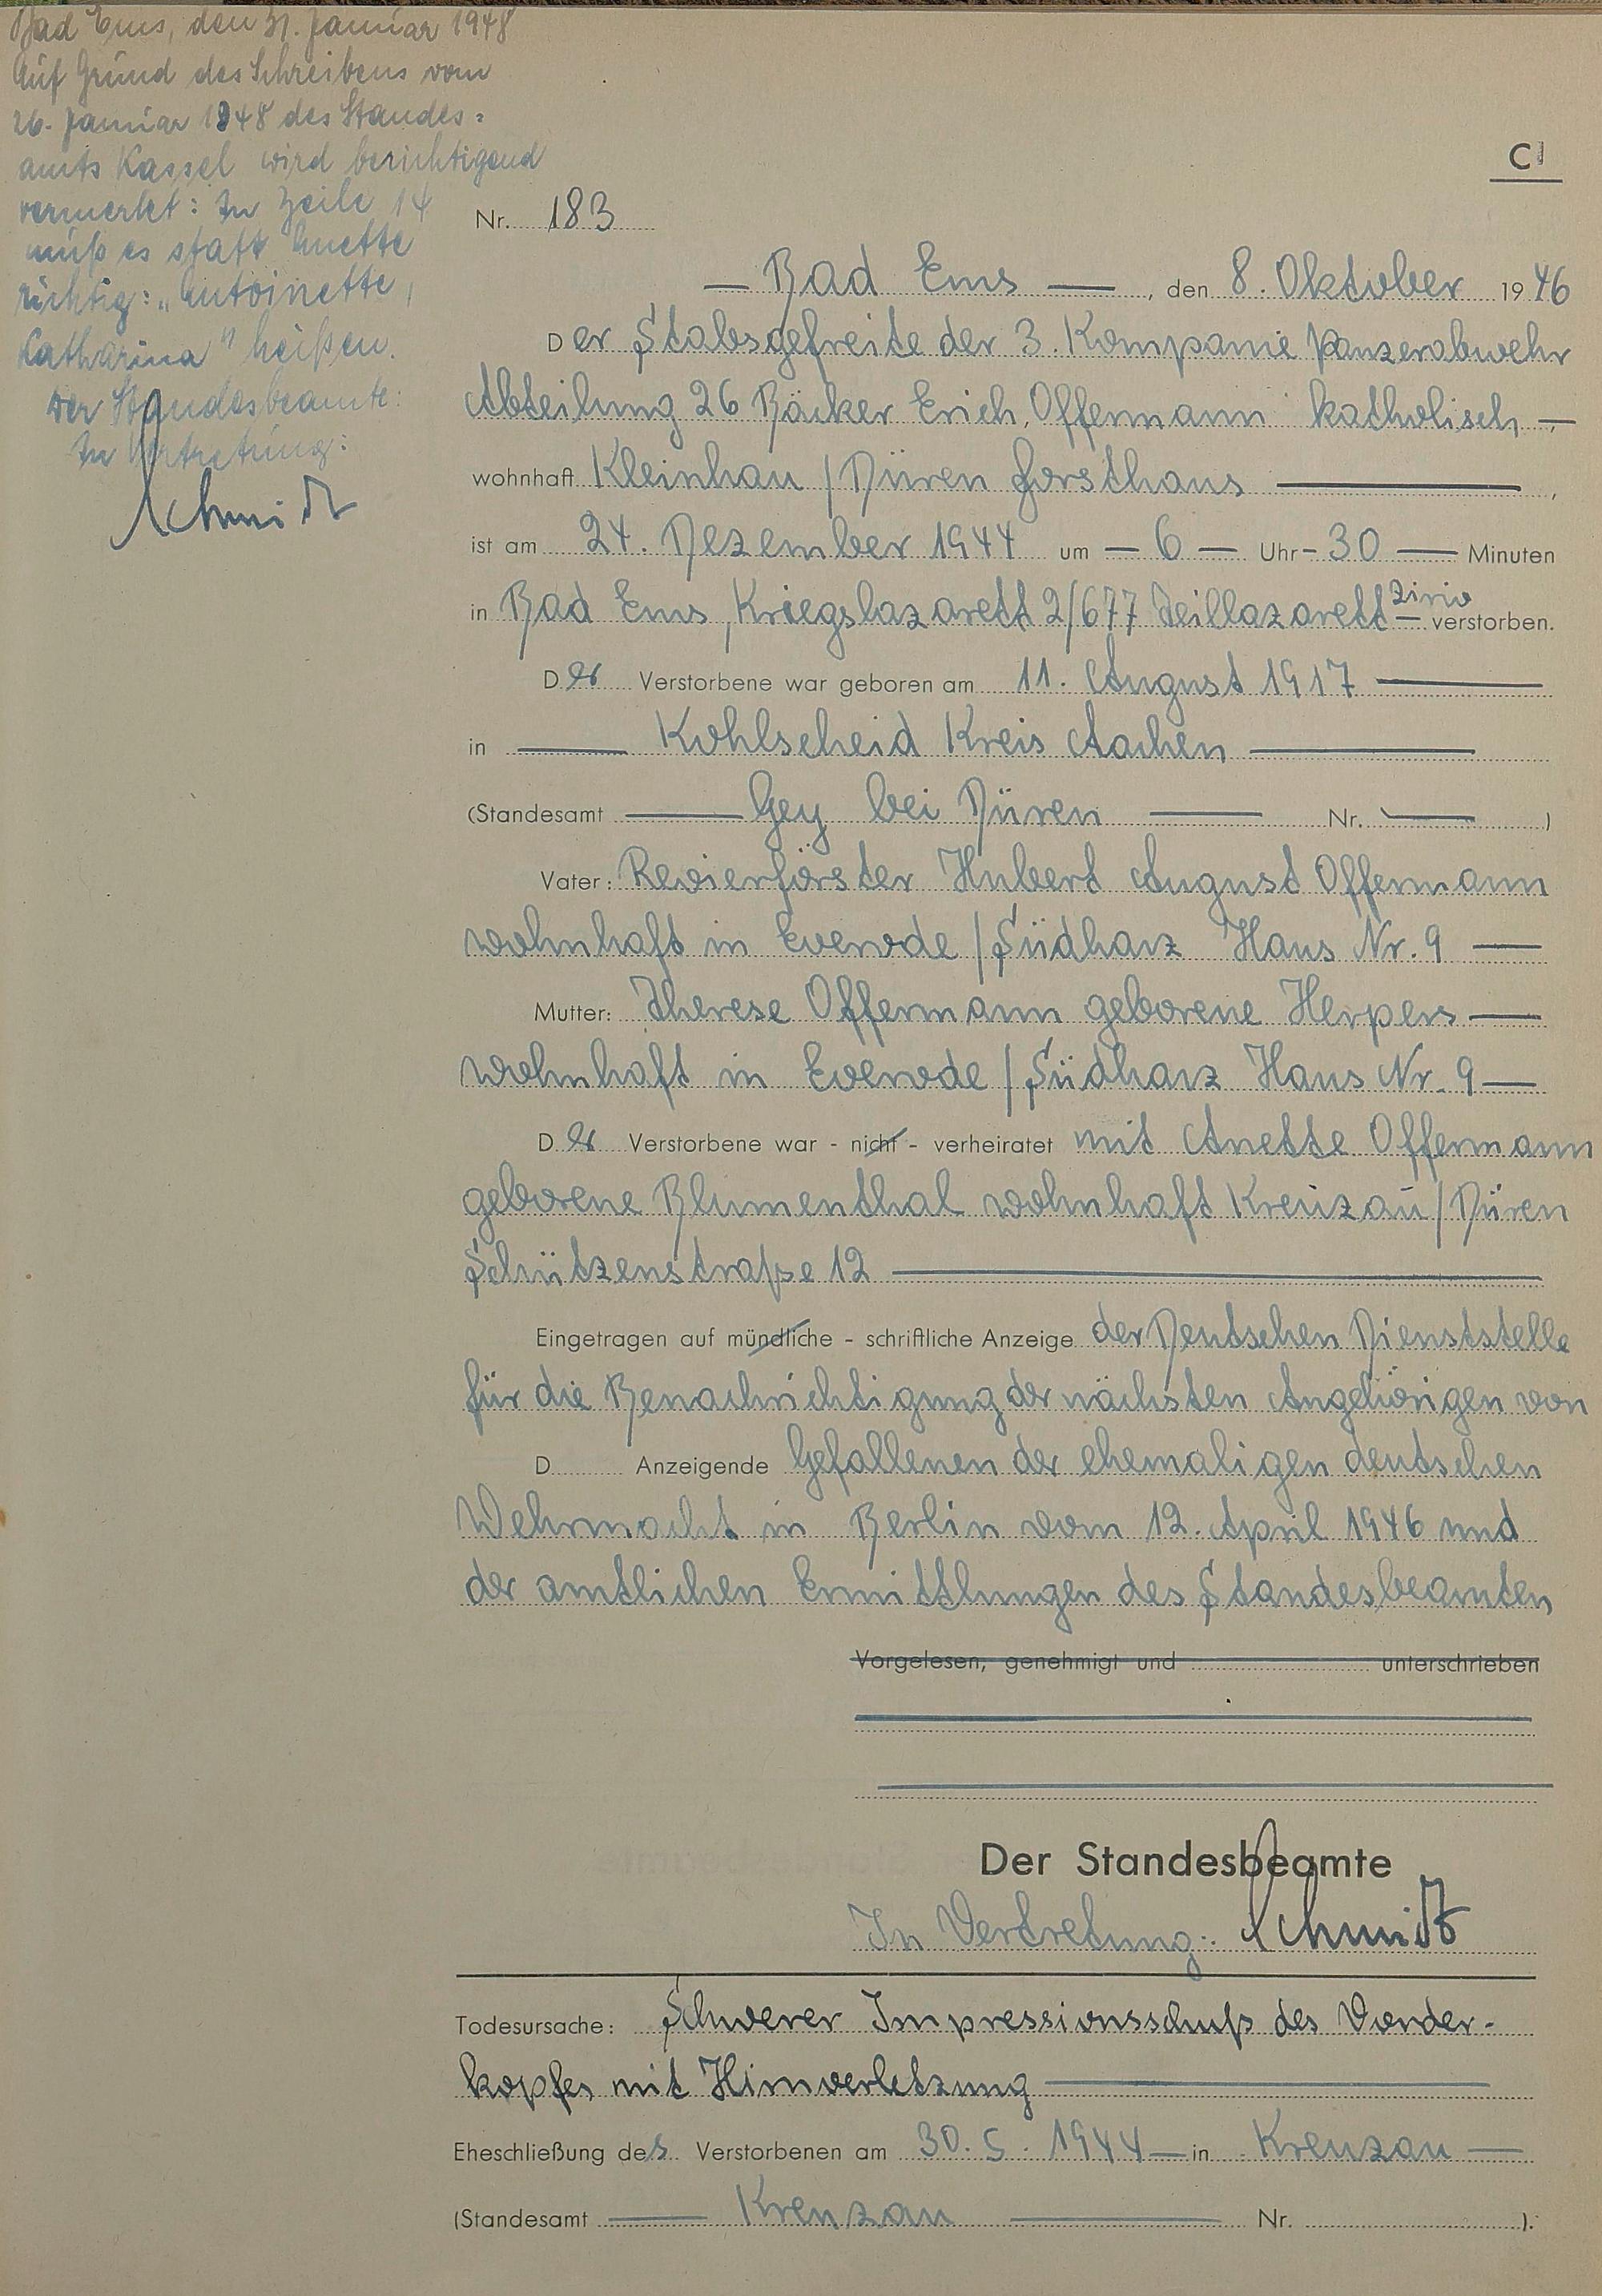 Bad Ems, den 31. Januar 1948
Auf Grund des Schreibens vom
26. Januar 1948 des Standes=
amts Kassel wird berichtigend
vermerkt: In Zeile 14
muß es statt Anette
richtig: „Antoinette,
Catharina" heißen.
Der Standesbeamte:
In Vertretung:
Schmidt
C
Nr. 183
— Bad Ems —, den 8. Oktober 1946
Der Stabsgefreite der 3. Kompanie Panzerabwehr
Abteilung 26 Bäcker Erich Offermann katholisch —,
wohnhaft Kleinhau / Düren Forsthaus —,
ist am 24. Dezember 1944 um — 6 — Uhr - 30 — Minuten
in Bad Ems, Kriegslazarett 2/677 Teillazarett — verstorben.
Der Verstorbene war geboren am 11. August 1917 —
in — Kohlscheid Kreis Aachen —
(Standesamt — Gey bei Düren — Nr. — )
Vater: Revierförster Hubert August Offermann
wohnhaft in Everode / Südharz Haus Nr. 9 —
Mutter: Therese Offermann geborene Herpers —
wohnhaft in Everode / Südharz Haus Nr. 9 —
Der Verstorbene war - nicht - verheiratet mit Anette Offermann
geborene Blumenthal wohnhaft Kreuzau / Düren
Schützenstraße 12 —
Eingetragen auf mündliche - schriftliche Anzeige der Deutschen Dienststelle
für die Benachrichtigung der nächsten Angehörigen von
D Anzeigende Gefallenen der ehemaligen deutschen
Wehrmacht in Berlin vom 12. April 1946 und
der amtlichen Ermittlungen des Standesbeamten
Vorgelesen, genehmigt und unterschrieben
Der Standesbeamte
In Vertretung: Schmidt
Todesursache: Schwerer Impressionsschuß des Vorder-
kopfes mit Hirnverletzung —
Eheschließung des Verstorbenen am 30. 5. 1944 — in Kreuzau —
(Standesamt — Kreuzau — Nr. ).